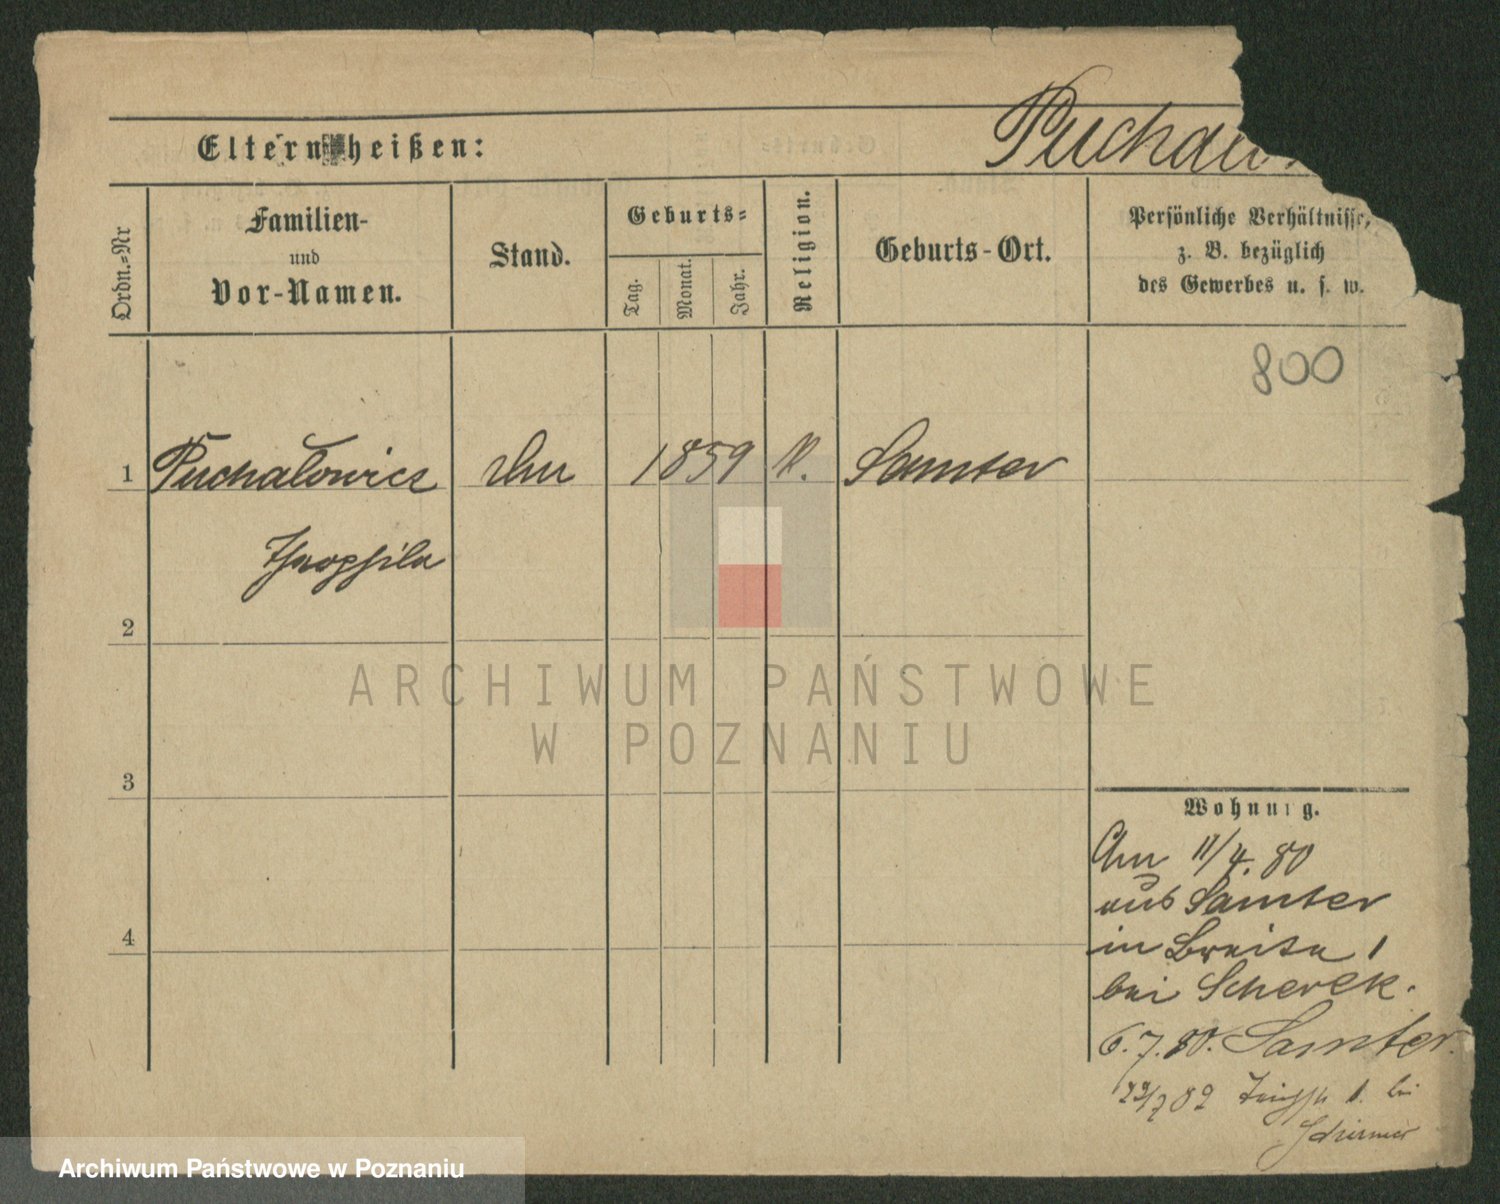 Eltern heißen:
Puchalo
Ordn.-Nr
Familien-
und
Vor-Namen.
Stand.
Geburts-
Tag.
Monat.
Jahr.
Religion.
Geburts-Ort.
Persönliche Verhältnisse,
z. B. bezüglich
des Gewerbes u. s. w.
800
1 Puchalowicz 1859 K. Samter
Theophila
2
3
4
Wohnung.
Am 11/4. 80
aus Samter
in Breite 1
bei Scherek.
6. 7. 80. Samter.
bei
ARCHIWUM PAŃSTWOWE
W POZNANIU
Archiwum Państwowe w Poznaniu